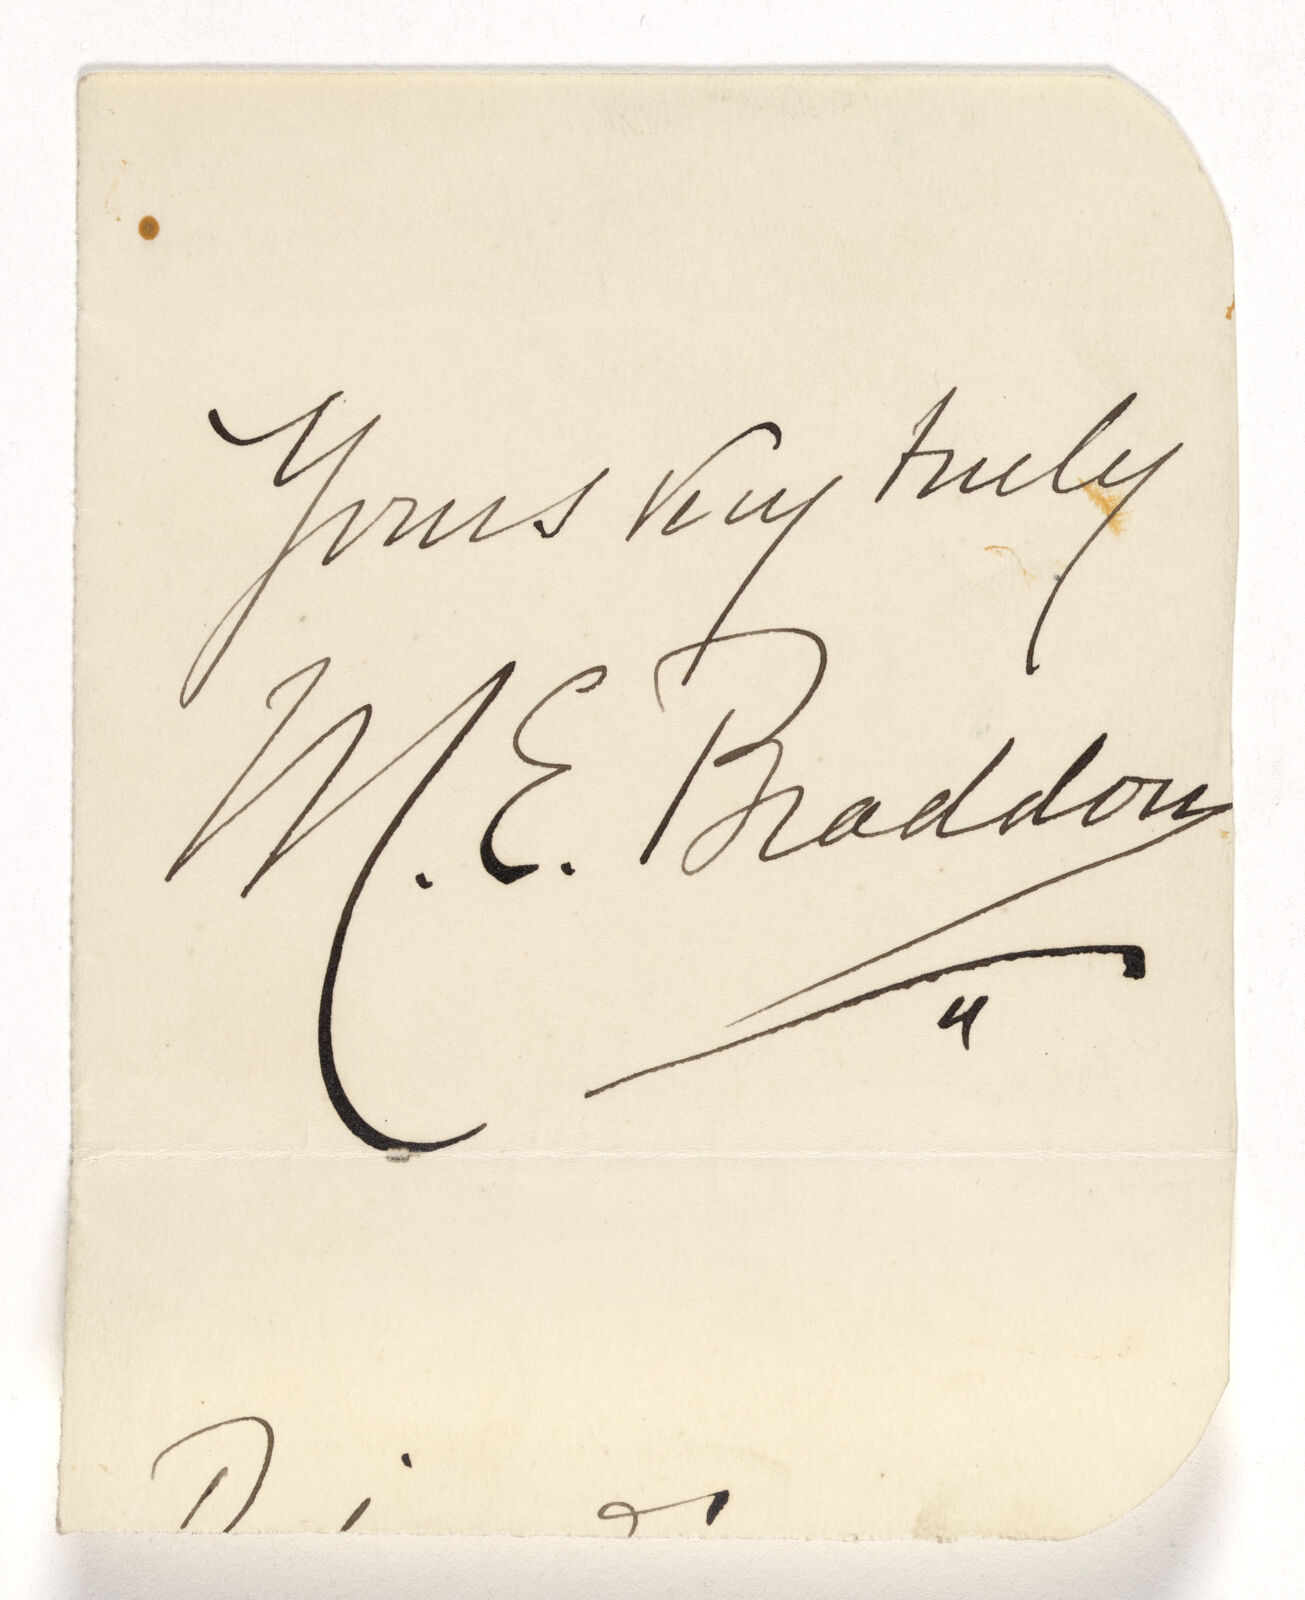 Yours very truly
M. E. Braddon